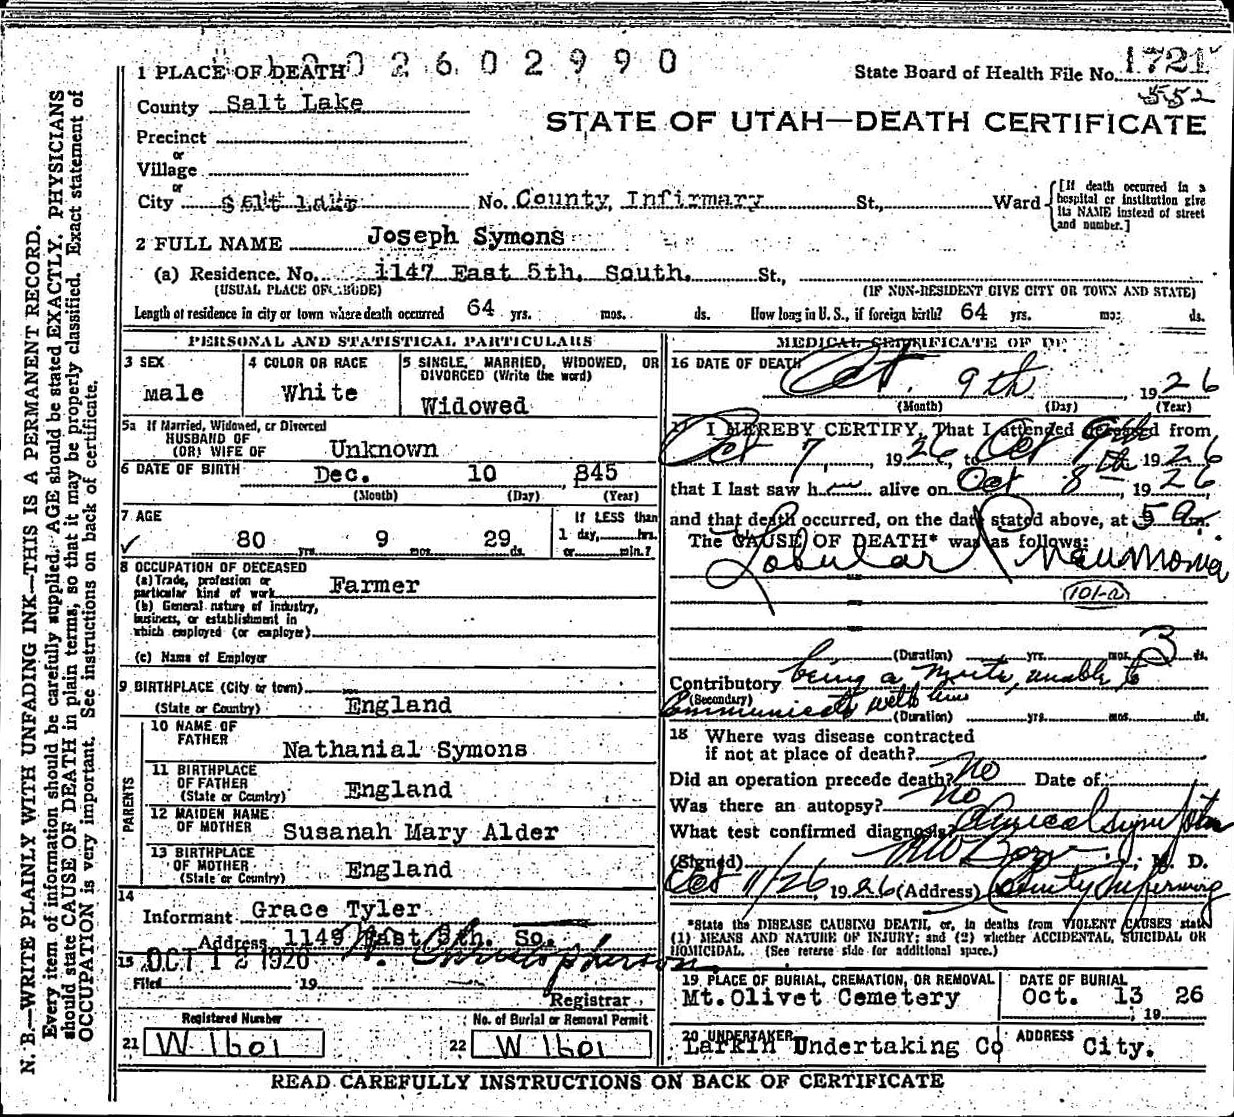 N. B.—WRITE PLAINLY WITH UNFADING INK—THIS IS A PERMANENT RECORD.
Every item of information should be carefully supplied. AGE should be stated EXACTLY. PHYSICIANS
should state CAUSE OF DEATH in plain terms, so that it may be properly classified. Exact statement of
OCCUPATION is very important. See instructions on back of certificate.
02602990
1 PLACE OF DEATH
State Board of Health File No. 1721
552
County Salt Lake
STATE OF UTAH—DEATH CERTIFICATE
Precinct
or
Village
or
City Salt Lake No. County Infirmary St., Ward
[If death occurred in a
hospital or institution give
its NAME instead of street
and number.]
2 FULL NAME Joseph Symons
(a) Residence. No. 1147 East 5th. South. St.,
(USUAL PLACE OF ABODE) (IF NON-RESIDENT GIVE CITY OR TOWN AND STATE)
Length of residence in city or town where death occurred 64 yrs. mos. ds. How long in U. S., if foreign birth? 64 yrs. mos. ds.
PERSONAL AND STATISTICAL PARTICULARS
3 SEX
Male
4 COLOR OR RACE
White
5 SINGLE, MARRIED, WIDOWED, OR
DIVORCED (Write the word)
Widowed
5a If Married, Widowed, or Divorced
HUSBAND OF
(OR) WIFE OF Unknown
6 DATE OF BIRTH Dec. 10 845
(Month) (Day) (Year)
7 AGE
80 yrs. 9 mos. 29 ds.
If LESS than
1 day, hrs.
or min.?
8 OCCUPATION OF DECEASED
(a) Trade, profession or
particular kind of work Farmer
(b) General nature of industry,
business, or establishment in
which employed (or employer)
(c) Name of Employer
9 BIRTHPLACE (City or town)
(State or Country) England
PARENTS
10 NAME OF
FATHER
Nathanial Symons
11 BIRTHPLACE
OF FATHER
(State or Country) England
12 MAIDEN NAME
OF MOTHER Susanah Mary Alder
13 BIRTHPLACE
OF MOTHER
(State or Country) England
14
Informant Grace Tyler
Address 1149 East 5th. So.
15 OCT 12 1926 Christopherson
Filed 19
Registrar
Registered Number
21 W 1601
No. of Burial or Removal Permit
22 W 1601
MEDICAL CERTIFICATE OF DE
16 DATE OF DEATH
Oct. 9th 1926
(Month) (Day) (Year)
I HEREBY CERTIFY, That I attended deceased from
Oct 7, 1926, to Oct 9th 1926
that I last saw h alive on Oct 8th, 1926
and that death occurred, on the date stated above, at 5 a.m.
The CAUSE OF DEATH* was as follows:
Lobular Pneumonia
101-a
(Duration) yrs. mos. 3 ds.
Contributory being a mute, unable to
(Secondary)
communicate with him
(Duration) yrs. mos. ds.
18 Where was disease contracted
if not at place of death?
Did an operation precede death? No Date of
Was there an autopsy? No
What test confirmed diagnosis? Clinical symptoms
(Signed) M. D.
Oct 11/26 1926 (Address) County Infirmary
*State the DISEASE CAUSING DEATH, or, in deaths from VIOLENT CAUSES state
(1) MEANS AND NATURE OF INJURY; and (2) whether ACCIDENTAL, SUICIDAL OR
HOMICIDAL. (See reverse side for additional space.)
19 PLACE OF BURIAL, CREMATION, OR REMOVAL
Mt. Olivet Cemetery
DATE OF BURIAL
Oct. 13 26
, 19
20 UNDERTAKER
Larkin Undertaking Co
ADDRESS City.
READ CAREFULLY INSTRUCTIONS ON BACK OF CERTIFICATE